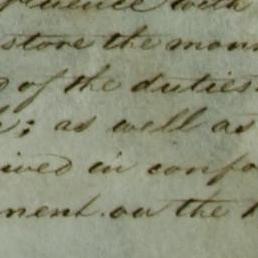 with
store the mon
of the duties
; as well as
ived in confo
ment on the